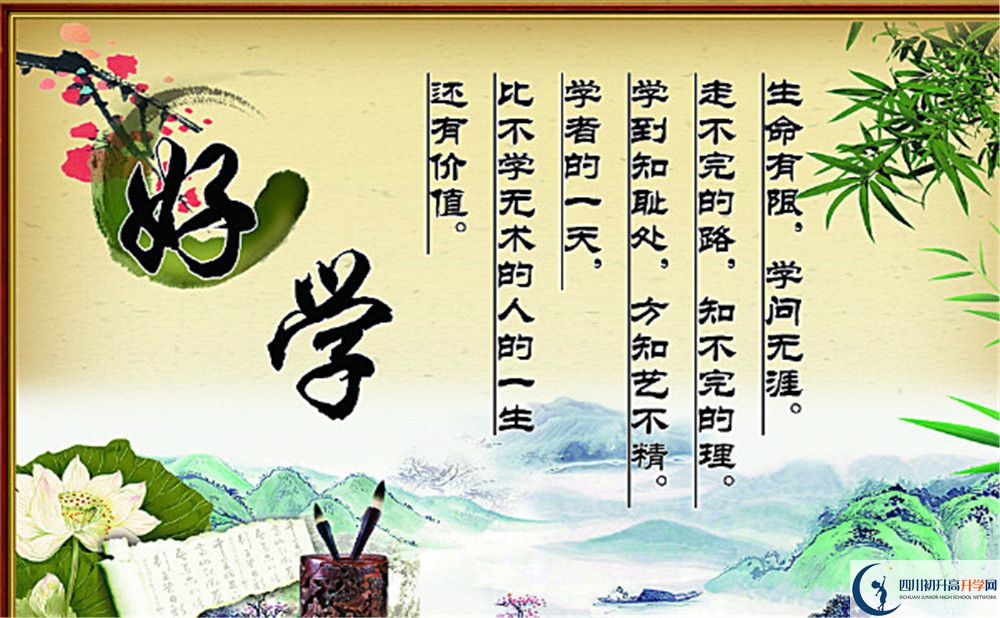 好
学
生命有限，学问无涯。
走不完的路，知不完的理。
学到知耻处，方知艺不精。
学者的一天，
比不学无术的人的一生
还有价值。
四川初升高升学网
SICHUAN JUNIOR HIGH SCHOOL NETWORK